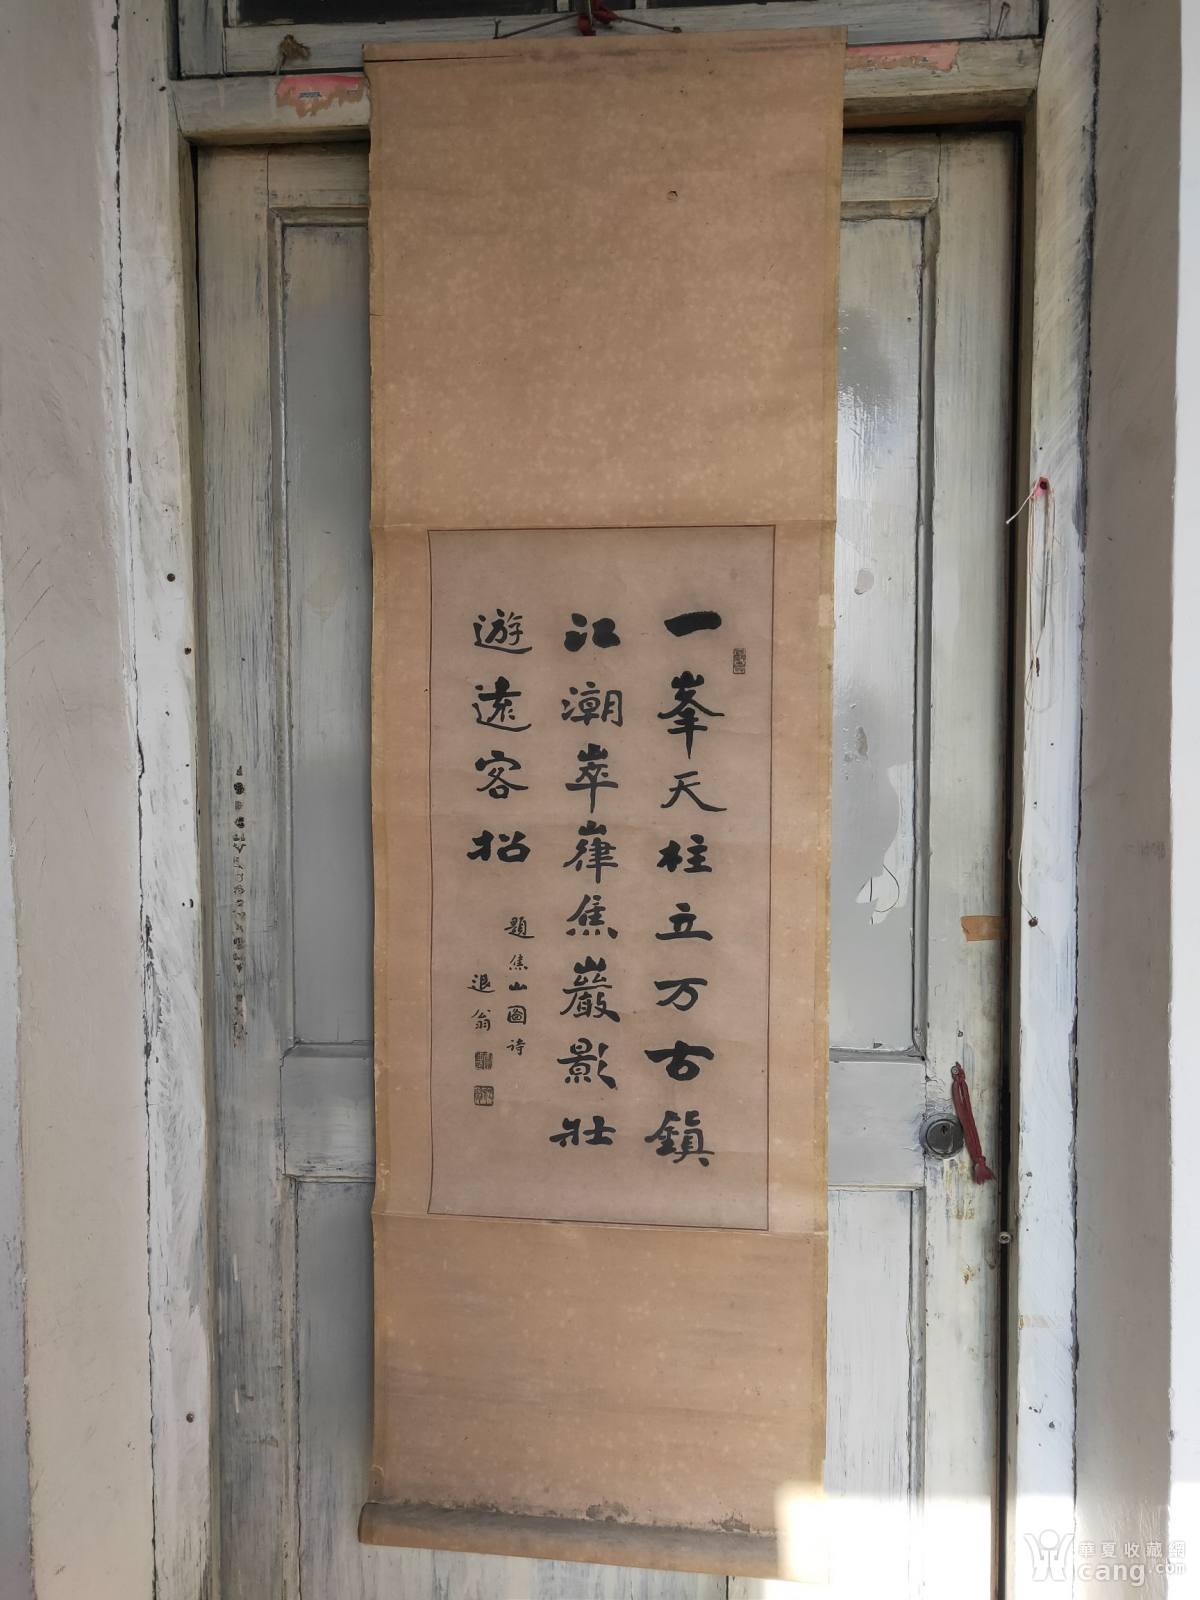 一峯天柱立万古鎮
江潮崒嵂焦巖影壯
遊遠客招
題焦山圖诗
退翁
華夏收藏網
cang.com